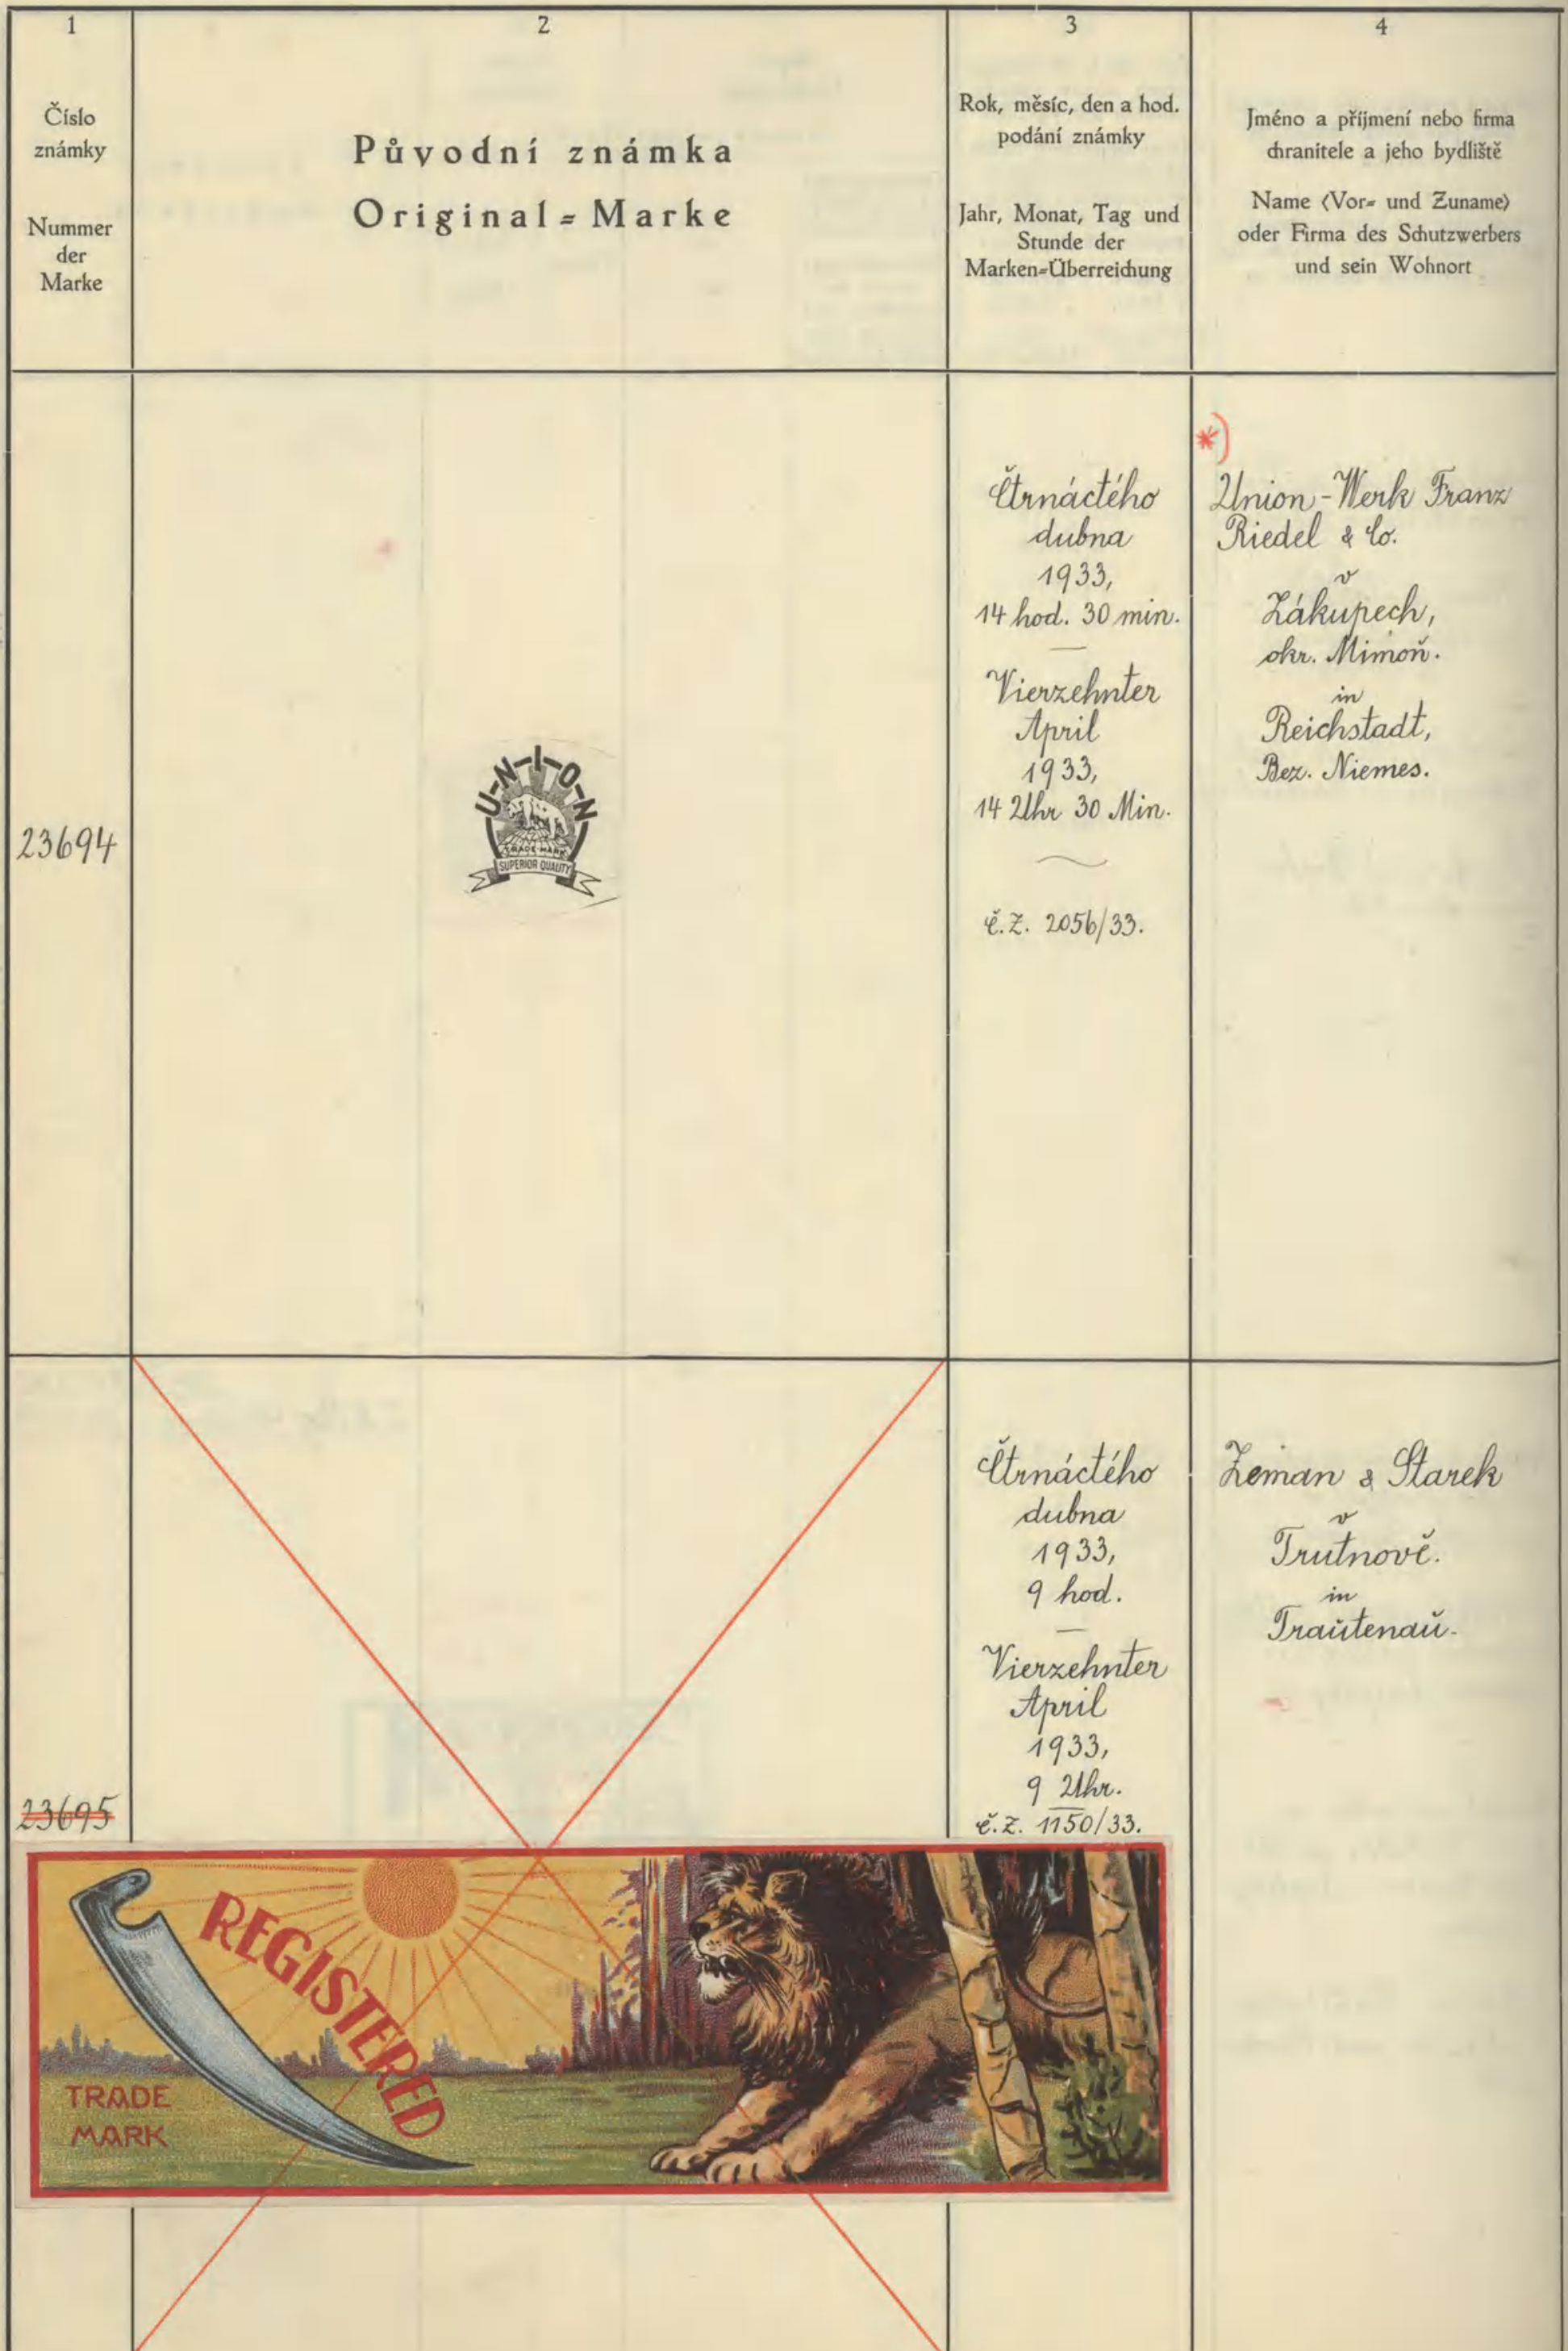 1
Číslo
známky
Nummer
der
Marke
2
Původní známka
Original=Marke
3
Rok, měsíc, den a hod.
podání známky
Jahr, Monat, Tag und
Stunde der
Marken=Überreichung
4
Jméno a příjmení nebo firma
chranitele a jeho bydliště
Name (Vor= und Zuname)
oder Firma des Schutzwerbers
und sein Wohnort
23694
U-N-I-O-N
TRADE MARK
SUPERIOR QUALITY
Čtrnáctého
dubna
1933,
14 hod. 30 min.
Vierzehnter
April
1933,
14 Uhr 30 Min.
č.z. 2056/33.
*)
Union-Werk Franz
Riedel & Co.
v
Zákupech,
okr. Mimoň.
in
Reichstadt,
Bez. Niemes.
23695
Čtrnáctého
dubna
1933,
9 hod.
Vierzehnter
April
1933,
9 Uhr.
č.z. 1150/33.
Zeman & Starek
v
Trutnově.
in
Traŭtenaŭ.
REGISTERED
TRADE
MARK